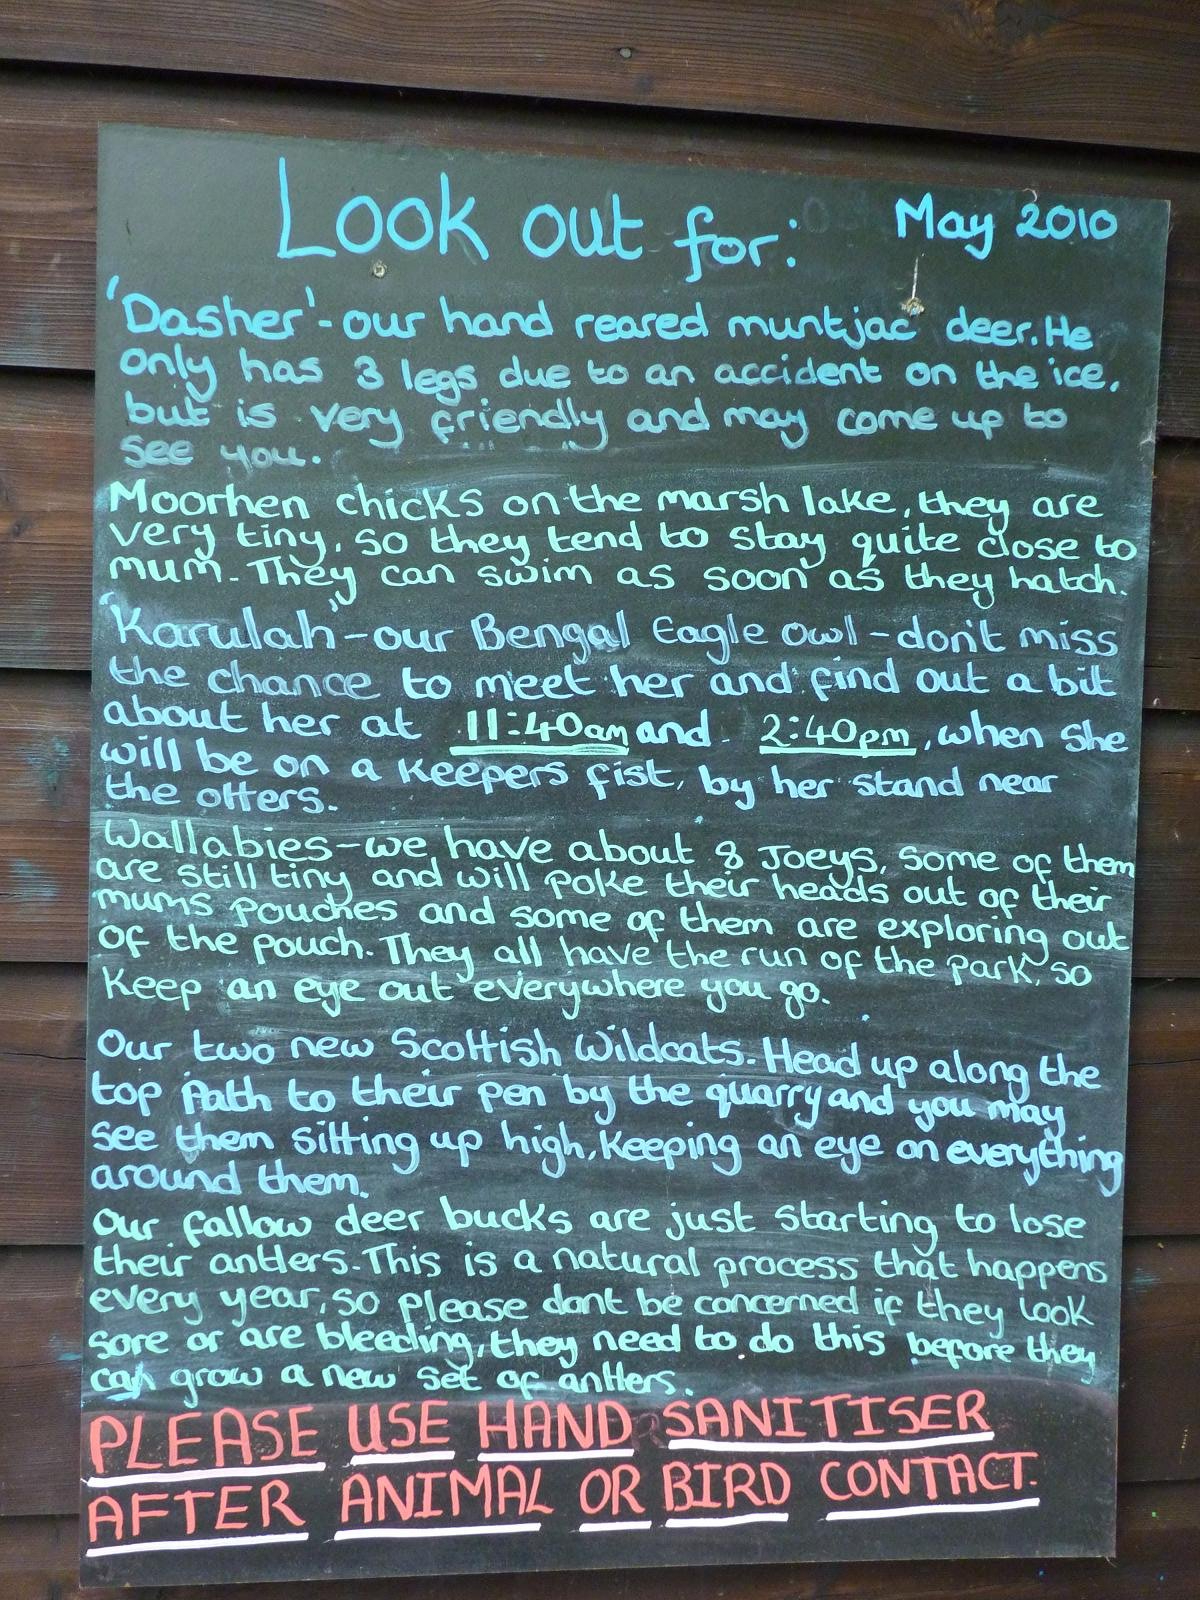 Look out for: May 2010
'Dasher' - our hand reared muntjac deer. He
only has 3 legs due to an accident on the ice,
but is very friendly and may come up to
see you.
Moorhen chicks on the marsh lake, they are
very tiny, so they tend to stay quite close to
mum. They can swim as soon as they hatch.
'Karulah' - our Bengal Eagle Owl - don't miss
the chance to meet her and find out a bit
about her at 11:40am and 2:40pm, when she
will be on a keepers fist, by her stand near
the otters.
Wallabies - we have about 8 Joeys, some of them
are still tiny and will poke their heads out of their
mums pouches and some of them are exploring out
of the pouch. They all have the run of the park, so
keep an eye out everywhere you go.
Our two new Scottish Wildcats. Head up along the
top path to their pen by the quarry and you may
see them sitting up high, keeping an eye on everything
around them.
Our fallow deer bucks are just starting to lose
their antlers. This is a natural process that happens
every year, so please dont be concerned if they look
sore or are bleeding, they need to do this before they
can grow a new set of antlers.
PLEASE USE HAND SANITISER
AFTER ANIMAL OR BIRD CONTACT.